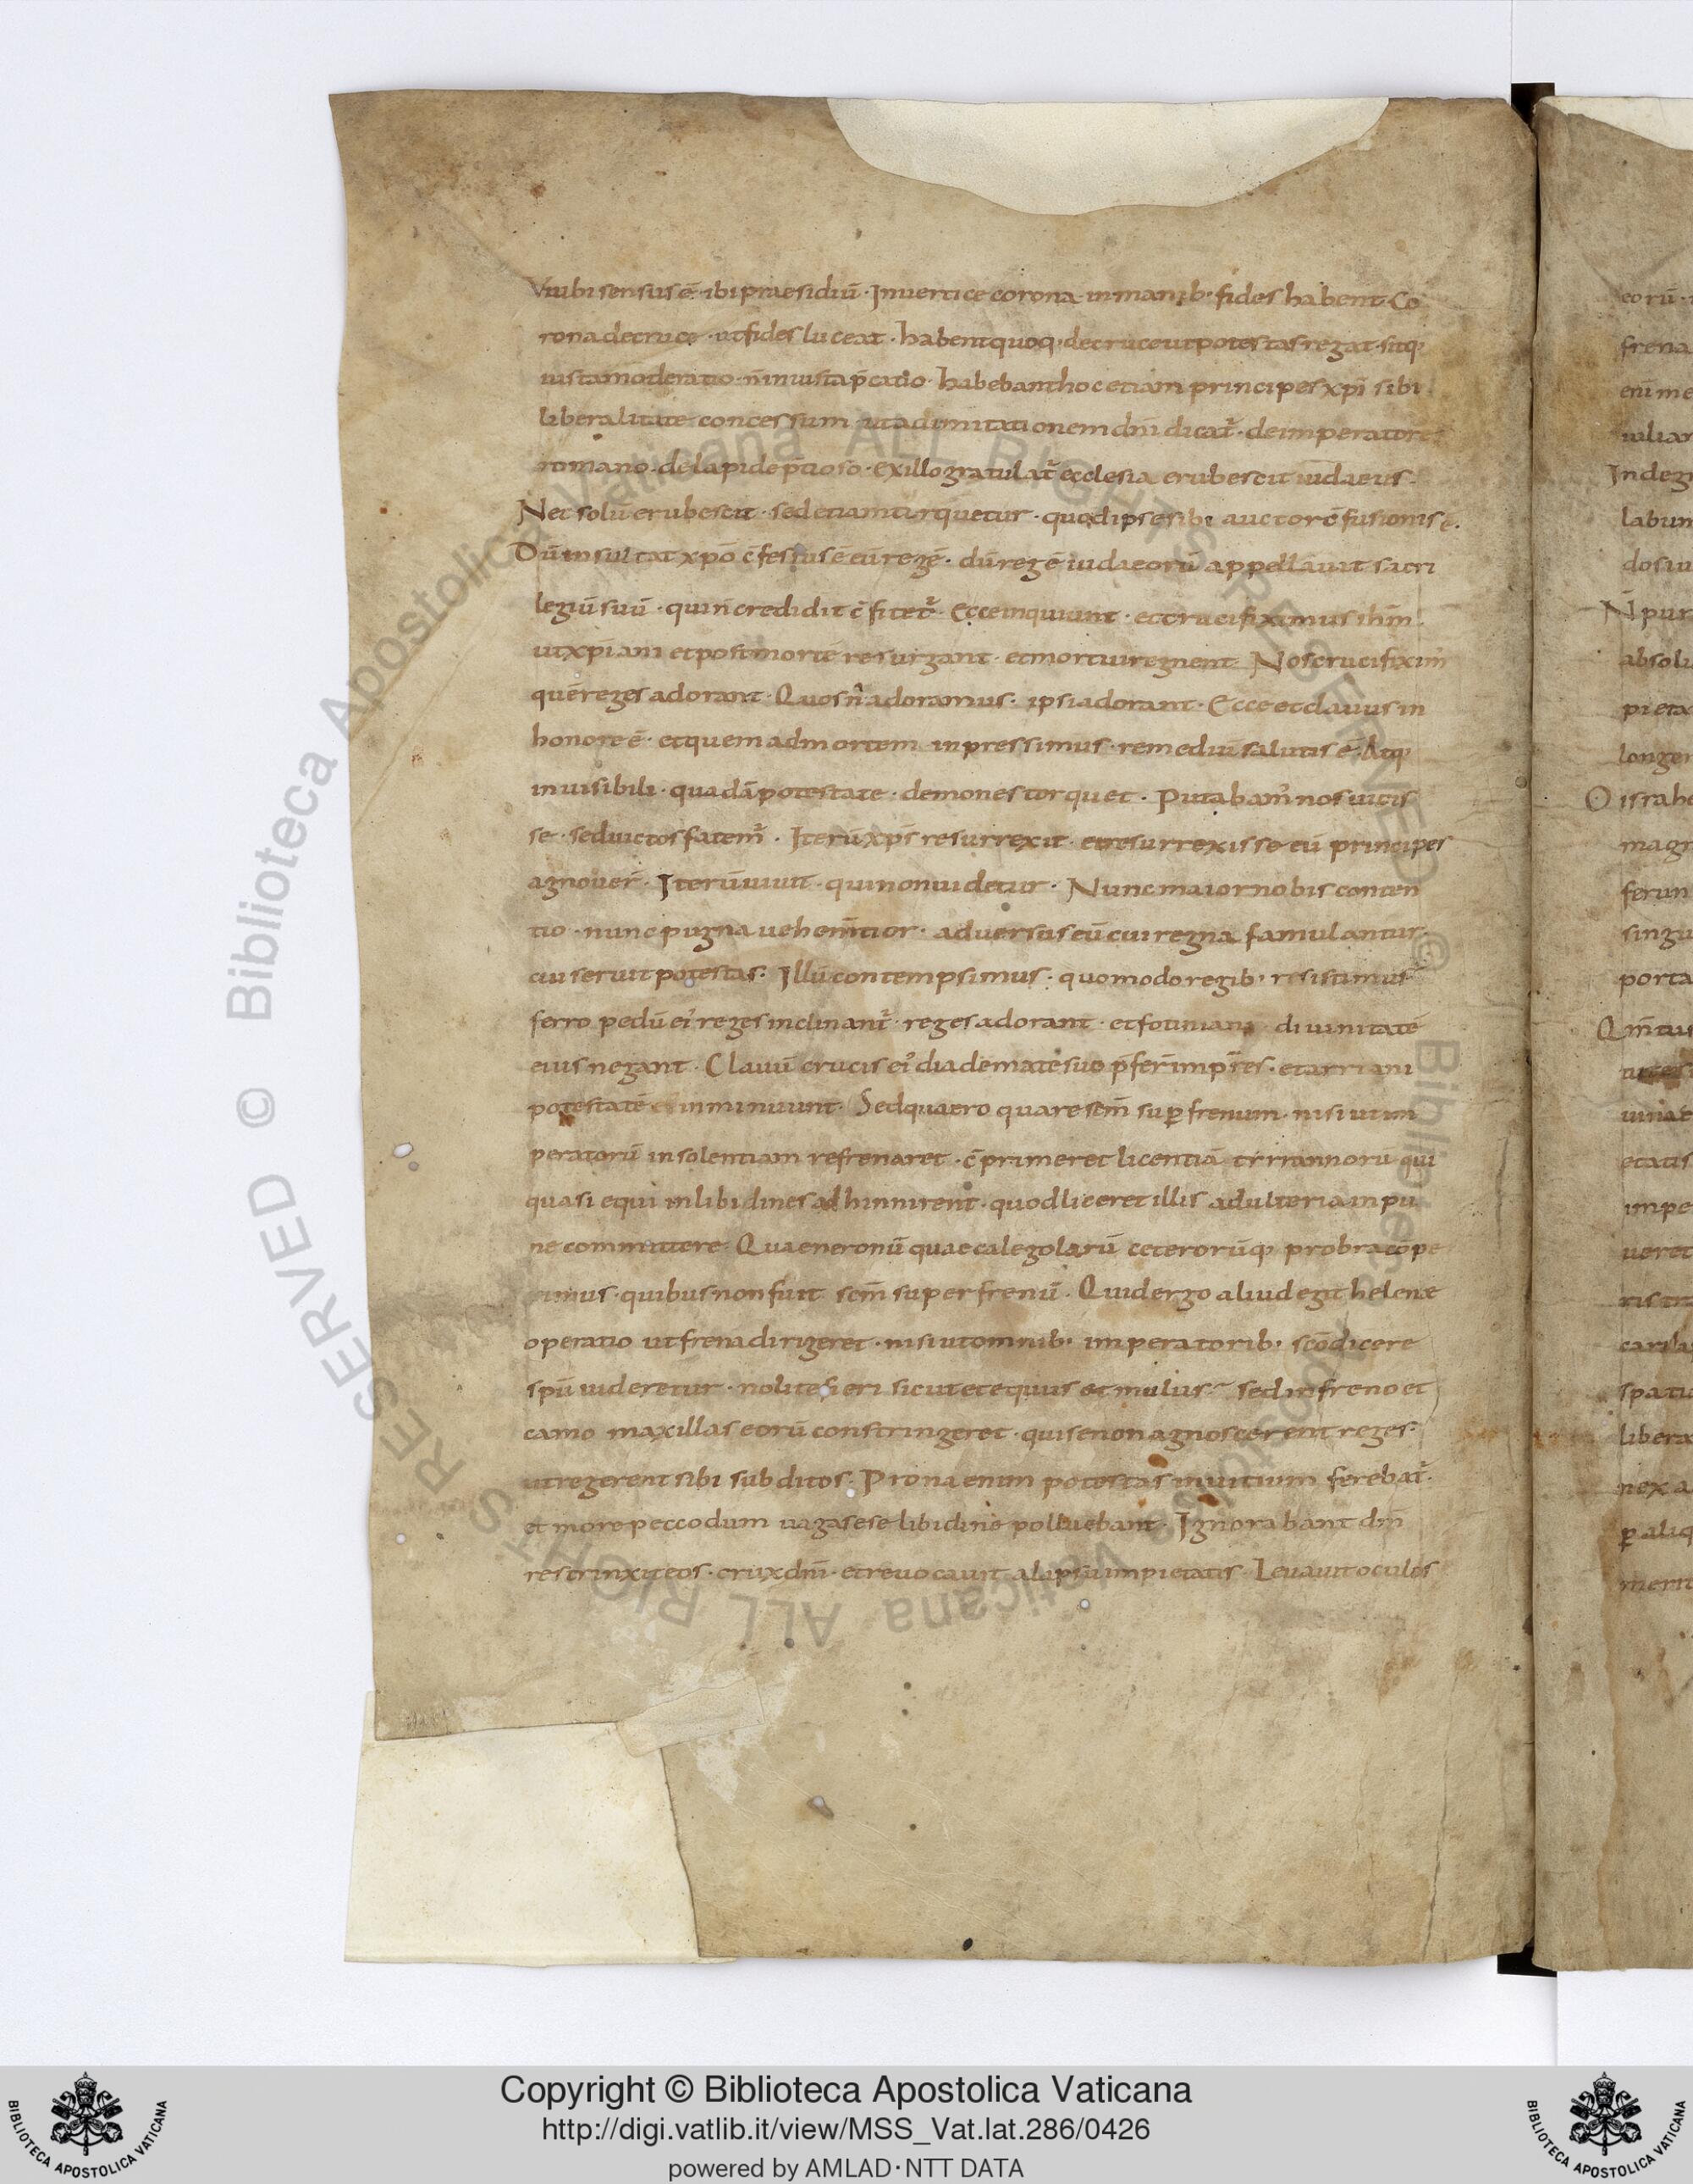 Vtubi sensus ē · ibi praesidiū · In uertice corona · in manib· fides habent Co
rona de cruce · ut fides luceat · habent quoq; de cruce ut potestas regat · sitq;
iusta moderatio · ñ iniusta p̄catio · habebant hoc etiam principes xp̄i sibi
liberalitate concessum · ut ad imitationem dn̄i dicat᷑ · de imperatore
romano · de lapide p̄tioso · ex illo gratulat᷑ ecclesia erubescit iudaeus ·
Nec solū erubescit · sed etiam torquetur · quod ipse sibi auctor c̄fusionis ē.
Dū insultat xp̄o c̄fessus ē eū regē · dū regē iudaeorū appellauit sacri
legiū suū · qui ñ credidit c̄fitet᷑ · Ecce inquiunt · et crucifiximus ihm̄
ut xp̄iani et post mortē resurgant · et mortui regnent Nos crucifixim᾽
quē reges adorant · Quos ñ adoramus · ipsi adorant · Ecce et clauus in
honore ē · et quem ad mortem inpressimus · remediū salutis ē · Atq;
inuisibili · quadā potestate · demones torquet · Putabam᾽ nos uicis
se · sed uictos fatem᷑ · Iterū xp̄s resurrexit · et resurrexisse eū principes
agnouer̄ · Iterū uiuit · qui non uidetur · Nunc maior nobis conten
tio · nunc pugna uehem̄tior · aduersus eū cui regna famulantur ·
cui seruit potestas · Illū contempsimus · quomodo regib; resistimus
ferro pedū ei᾽ reges inclinant᷑ · reges adorant · et fotiniani diuinitatē
eius negant · Clauū crucis ei᾽ diademate suo p̄fer̄ imp̄res · et arriani
potestatē ei inminuunt · Sed quaero quare scm̄ sup frenum · nisi ut im
peratorū insolentiam refrenaret · c̄primeret licentiā tyrrannorū qui
quasi equi in libidines adhinnirent · quod liceret illis adulteria inpu
ne committere Quae neronū quae calegolarū ceterorūq; probra cōpe
rimus · quibus non fuit scm̄ super frenū · Quid ergo aliud egit helenæ
operatio ut frena dirigeret · nisi ut omnib; imperatorib; scō dicere
spū uideretur · nolite fieri sicut et equus et mulus sed in freno et
camo maxillas eorū constringeret · qui se non agnoscerent reges
ut regerent sibi subditos · Prona enim potestas in uitium ferebat᷑ ·
et more peccodum uaga sese libidine polluebant · Ignorabant dm̄
restrinxit eos · crux dn̄i · et reuocauit a lapsū impietatis · Leuauit oculos
Copyright © Biblioteca Apostolica Vaticana
http://digi.vatlib.it/view/MSS_Vat.lat.286/0426
powered by AMLAD·NTT DATA